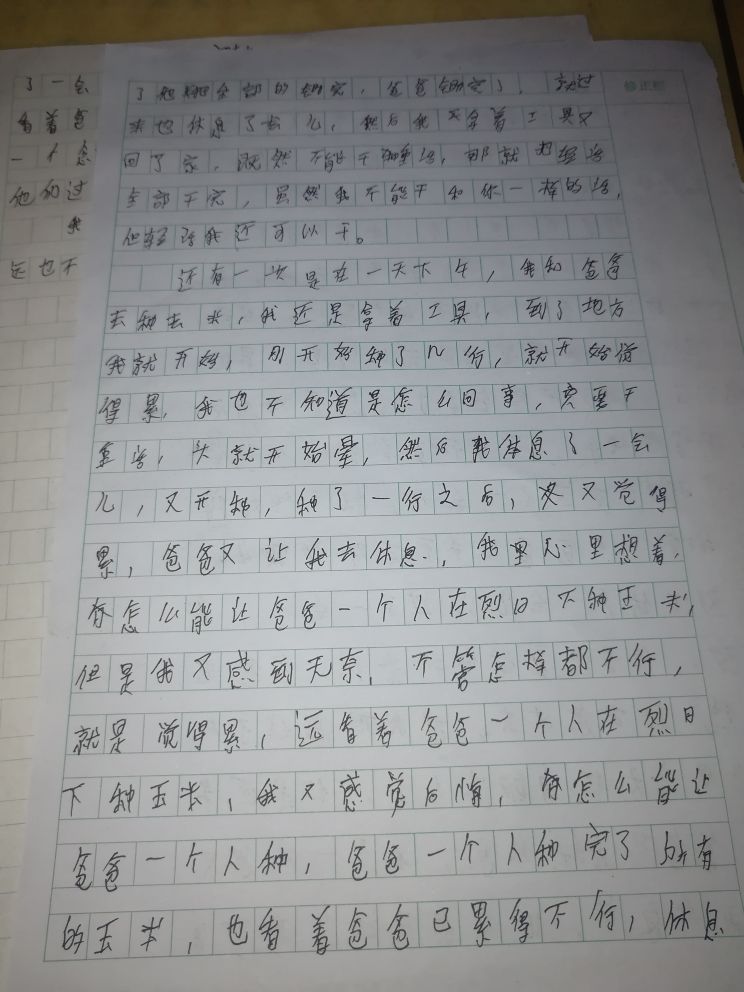 了一会
看着爸
一个怎
他们过
我
远也不
修正栏
了把全部的锄完，爸爸锄完了，就过
来也休息了会儿，然后我又拿着工具又
回了家，既然不能干重活，那就把轻活
全部干完，虽然我不能干和你一样的活，
但轻活我还可以干。
还有一次是在一天下午，我和爸爸
去种玉米，我还是拿着工具，到了地方
我就开始，刚开始种了几行，就开始觉
得累，我也不知道是怎么回事，突要干
重活，头就开始晕，然后我休息了一会
儿，又开种，种了一行之后，又觉得
累，爸爸又让我去休息，我里心里想着，
我怎么能让爸爸一个人在烈日下种玉米，
但是我又感到无奈，不管怎样都不行，
就是觉得累，远看着爸爸一个人在烈日
下种玉米，我又感觉后悔，我怎么能让
爸爸一个人种，爸爸一个人种完了所有
的玉米，也看着爸爸已累得不行，休息